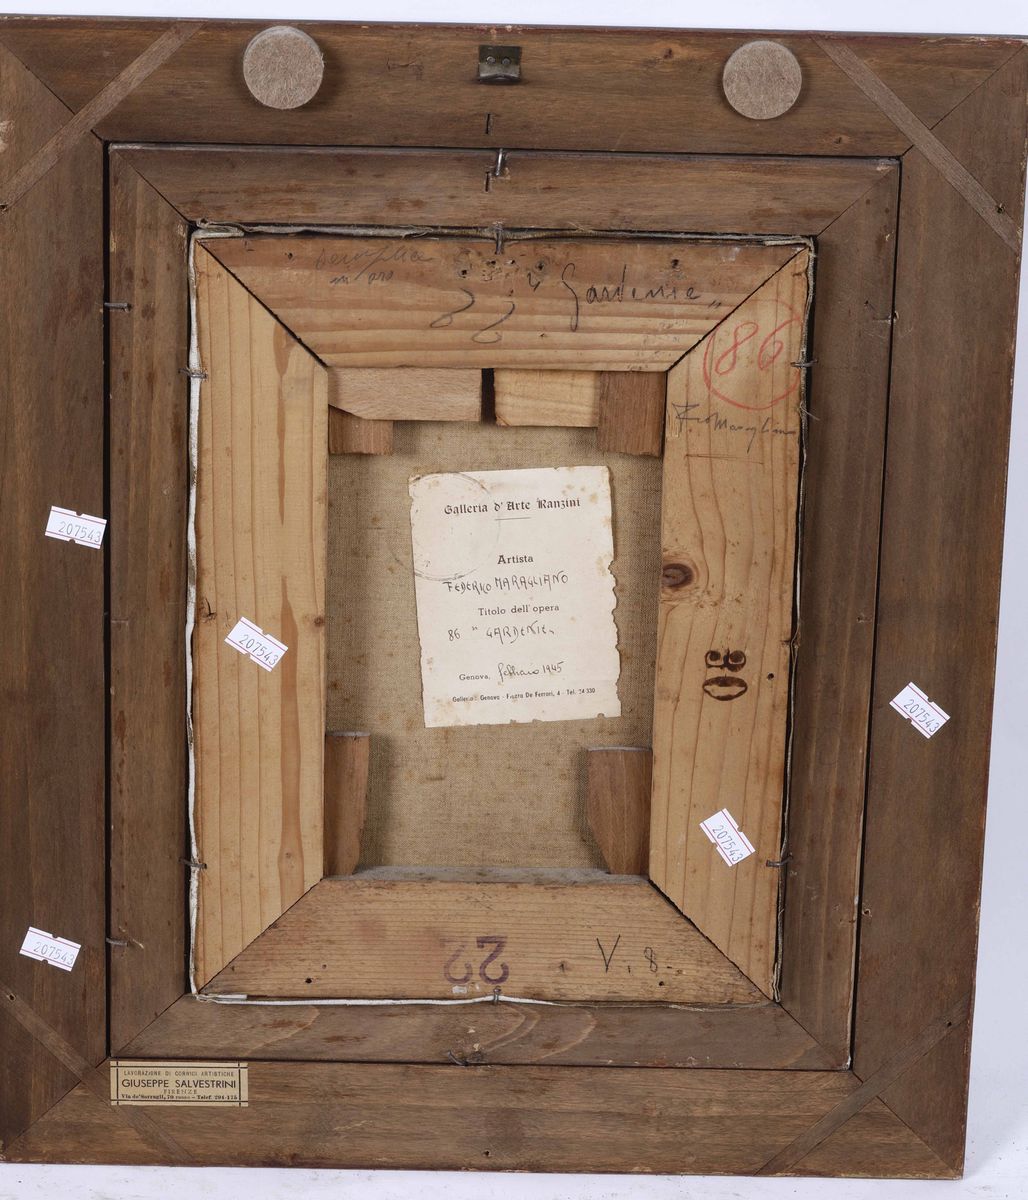 in oro
"Gardenie"
86
207543
Galleria d'Arte Ranzini
Artista
FEDERICO MARAGLIANO
Titolo dell'opera
86 "GARDENIE"
Genova, febbraio 1945
Galleria: Genova - Piazza De Ferrari, 4 - Tel. 24-330
207543
207543
207543
207543
22
V. 8.
LAVORAZIONE DI CORNICI ARTISTICHE
GIUSEPPE SALVESTRINI
FIRENZE
Via de' Serragli, 79 rosso - Telef. 294-175